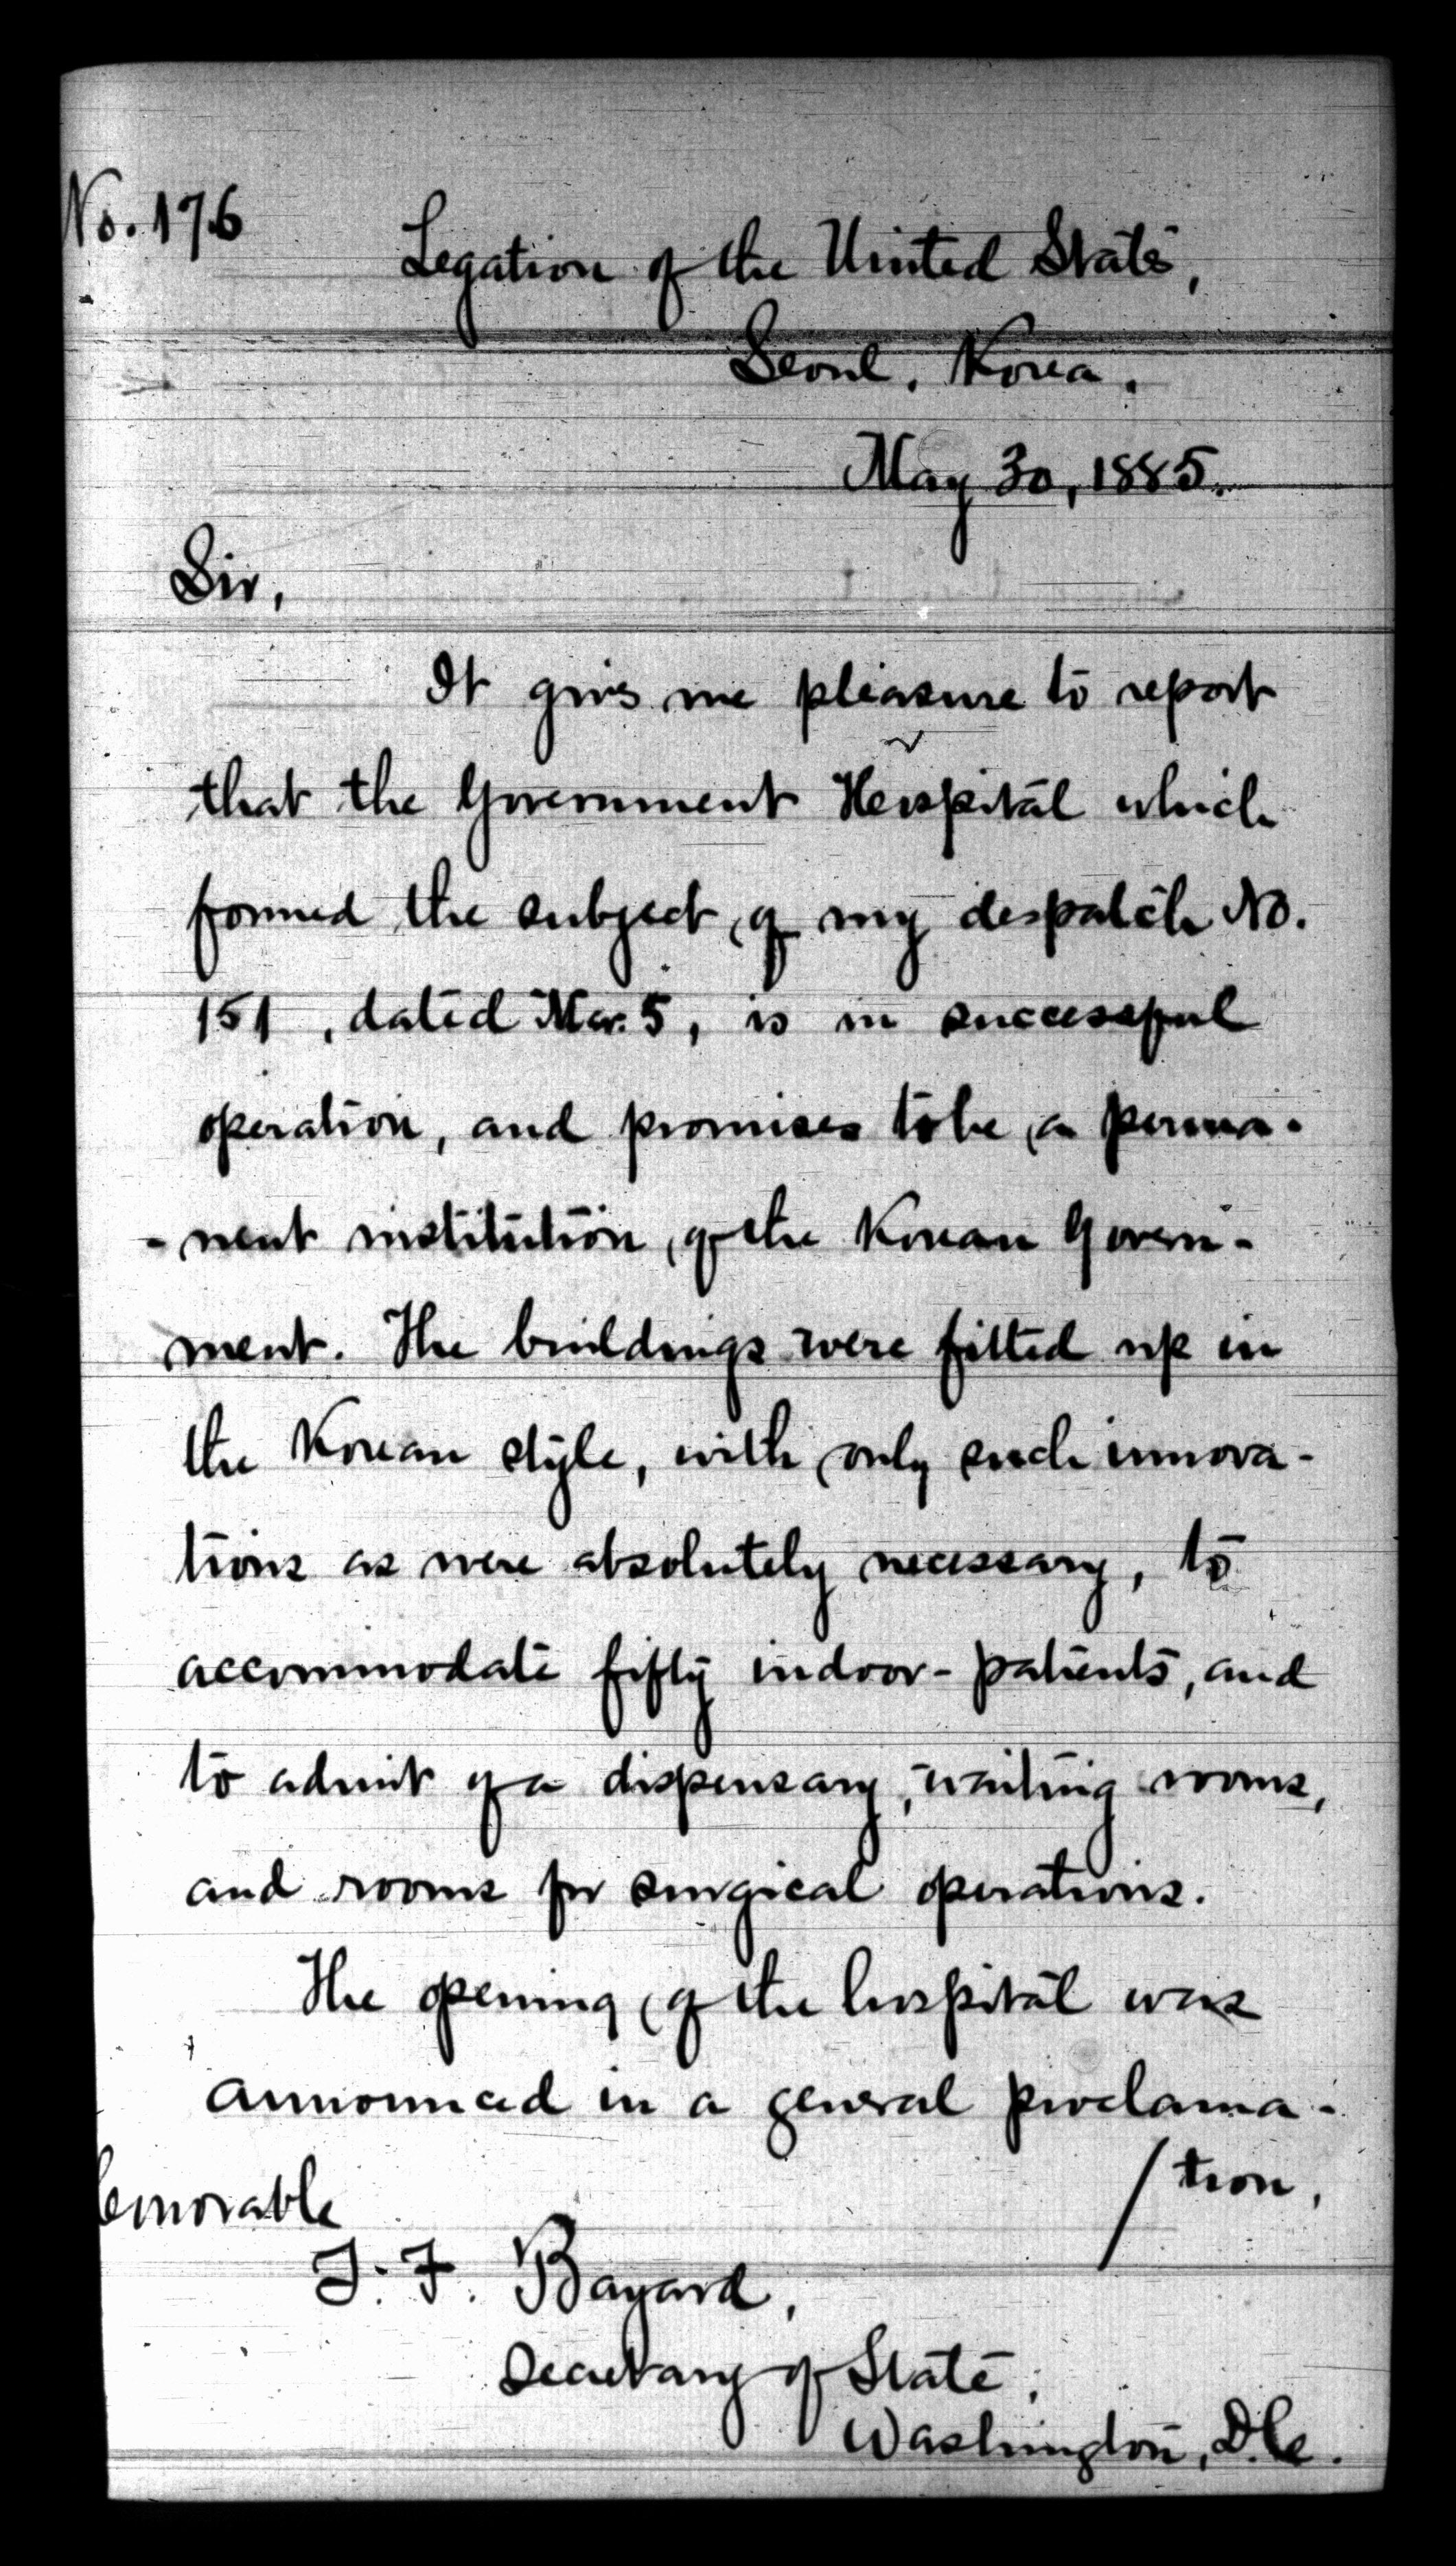 No. 176
Legation of the United States,
Seoul, Korea.
May 30, 1885.
Sir,
It gives me pleasure to report
that the Government Hospital which
formed the subject of my despatch No.
151, dated Mar. 5, is in successful
operation, and promises to be a perma-
-nent institution of the Korean Govern-
ment. The buildings were fitted up in
the Korean style, with only such innova-
tions as were absolutely necessary, to
accommodate fifty indoor-patients, and
to admit of a dispensary, waiting rooms,
and rooms for surgical operations.
The opening of the hospital was
announced in a general proclama-
/tion,
T. F. Bayard,
Secretary of State,
Washington, D.C.